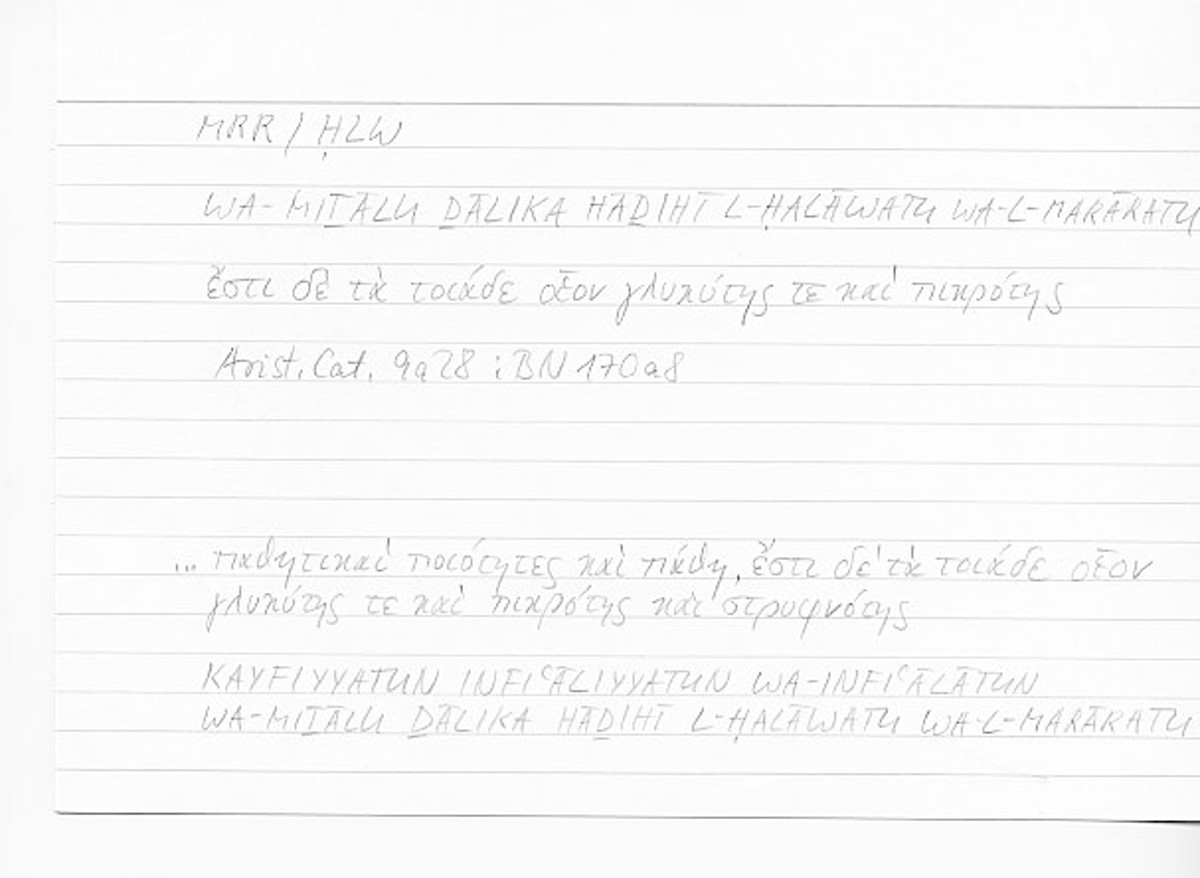 MRR / ḤLW
WA-MIṮĀLU ḎĀLIKA HĀḎIHĪ L-ḤALĀWATU WA-L-MARĀRATU
ἔστι δὲ τὰ τοιάδε οἷον γλυκύτης τε καὶ πικρότης
Arist. Cat. 9a28 ; BN 170a8
... παθητικαὶ ποιότητες καὶ πάθη, ἔστι δὲ τὰ τοιάδε οἷον
γλυκύτης τε καὶ πικρότης καὶ στρυφνότης
KAYFIYYATUN INFIʿĀLIYYATUN WA-INFIʿĀLĀTUN
WA-MIṮĀLU ḎĀLIKA HĀḎIHĪ L-ḤALĀWATU WA-L-MARĀRATU